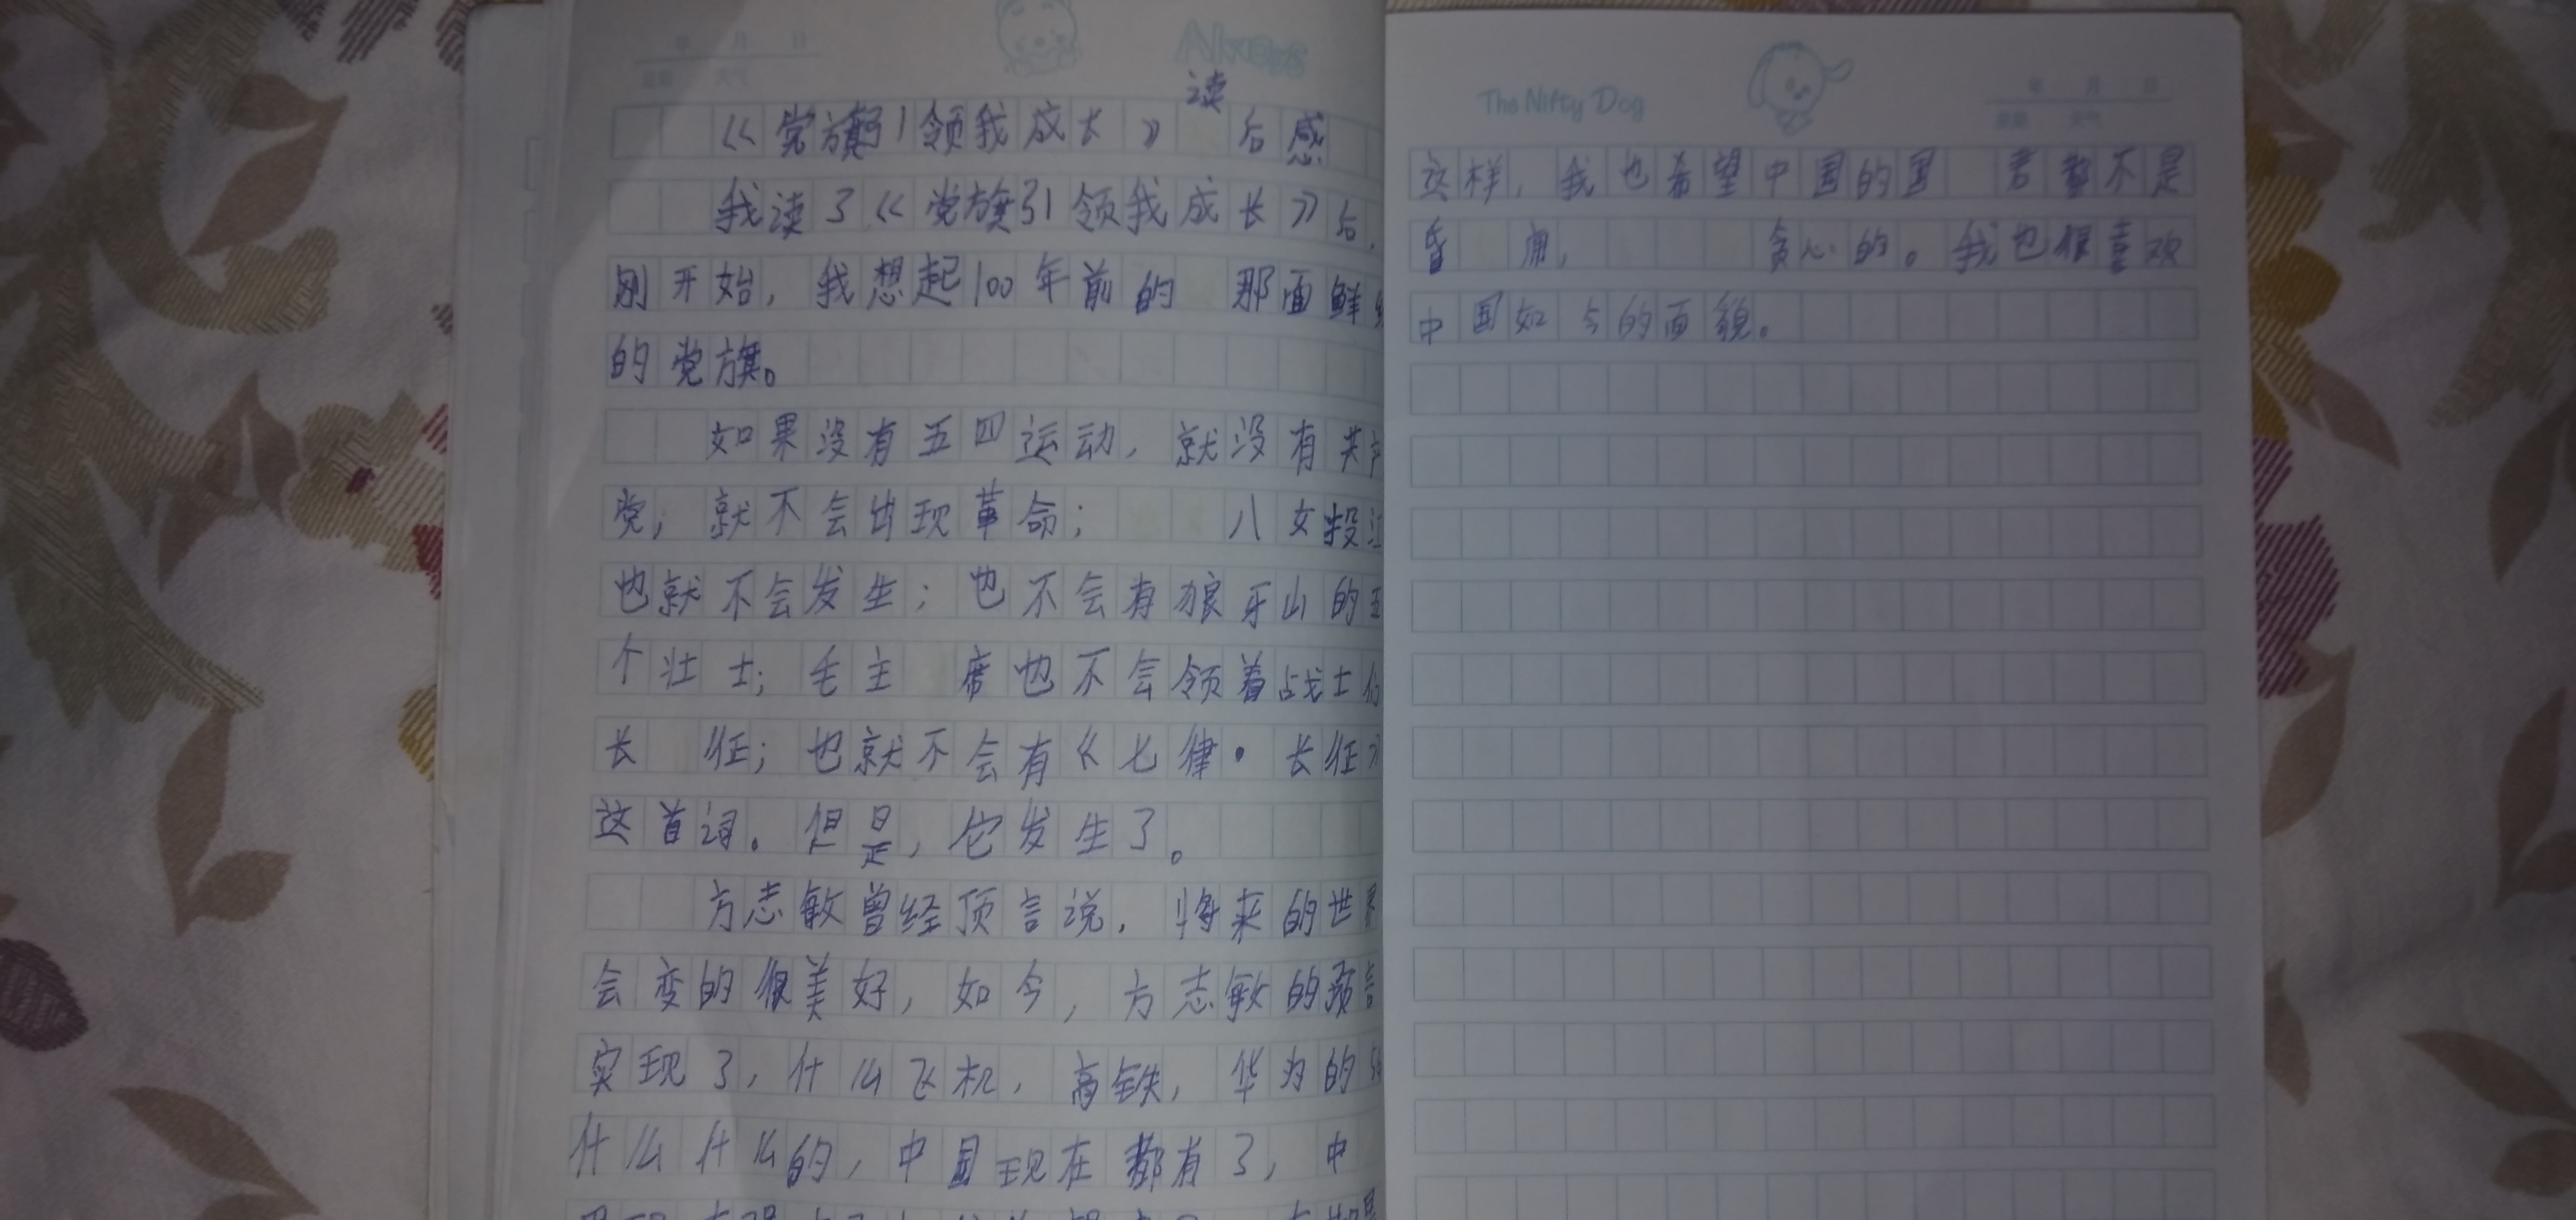 Always
读
《党旗引领我成长》 后感
我读了《党旗引领我成长》后，
刚开始，我想起100年前的 那面鲜
的党旗。
如果没有五四运动，就没有共产
党，就不会出现革命； 八女投江
也就不会发生；也不会有狼牙山的五
个壮士；毛主 席也不会领着战士们
长 征；也就不会有《七律·长征》
这首词。但是，它发生了。
方志敏曾经预言说，将来的世界
会变的很美好，如今，方志敏的预言
实现了，什么飞机，高铁，华为的
什么什么的，中国现在都有了，中
The Nifty Dog
年 月 日
这样，我也希望中国的国 君都不是
昏 庸， 贪心的。我也很喜欢
中国如今的面貌。